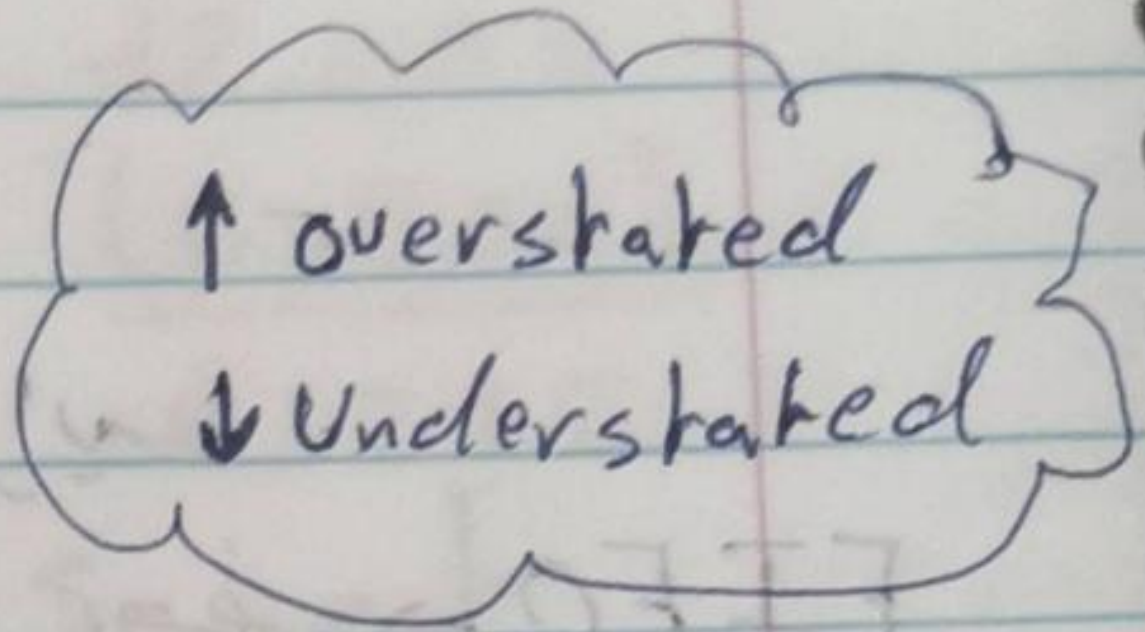 ↑ overstated
↓ Understated